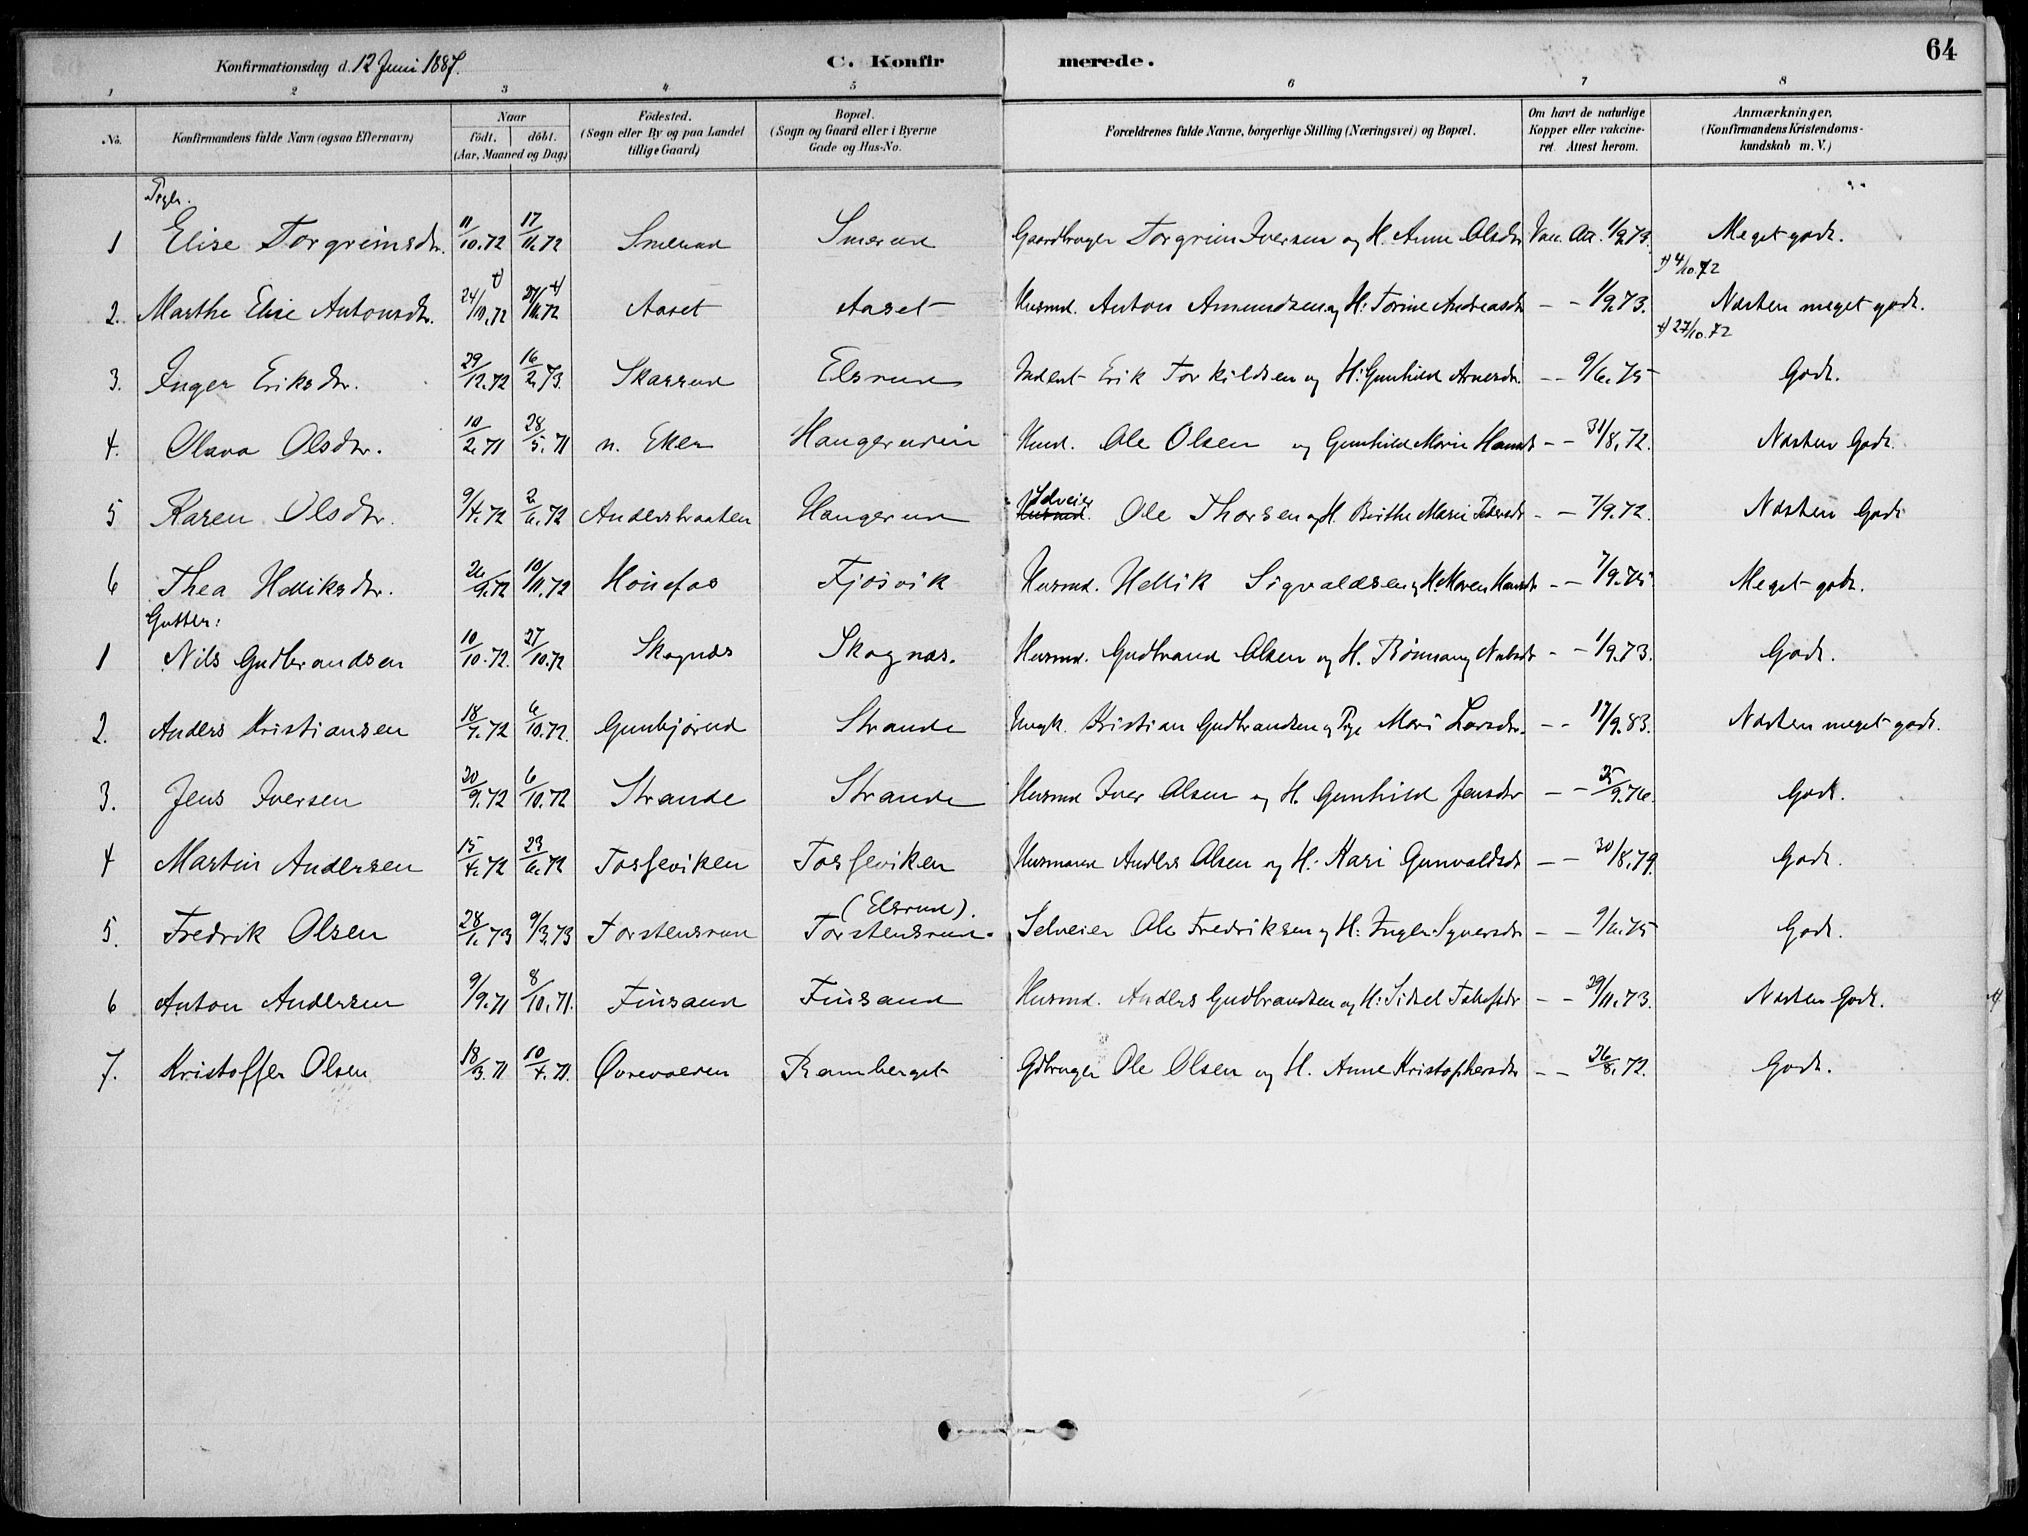 Konfirmationsdag d. 12 Juni 1887. C. Konfirmerede. 64
1 2 3 4 5 6 7 8
No. Konfirmandens fulde Navn (ogsaa Efternavn) Naar födt. döbt. (Aar, Maaned og Dag) Födested. (Sogn eller By og paa Landet tillige Gaard) Bopæl. (Sogn og Gaard eller i Byerne Gade og Hus-No. Forældrenes fulde Navne, borgerlige Stilling (Næringsvei) og Bopæl. Om havt de naturlige Kopper eller vakcineret. Attest herom. Anmærkninger. (Konfirmandens Kristendomskundskab m. V.)
1 Elise Torgrimsdtr. 11/10.72 17/11.72 Smerud Smerud Gaardbruger Torgrim Iversen og H. Anne Olsdtr Vac. Att. 1/9.73. Meget godt.
2. Marthe Elise Antonsdtr. 24/10.72 +) 27/11.72 +) Aaset Aaset Husmd. Anton Amundsen og H. Torine Andreasdtr - - 1/9.73. +) 4/10.72 Næsten meget godt. +) 27/10.72
3. Inger Eriksdtr. 29/12.72 16/2.73. Skarrud Elsrud Erik Torkildsen og H. Gunhild Arnesdtr. - - 9/6.75 Godt.
4. Olava Olsdtr. 10/2.71 28/5.71 n. Eker Haugerudeie Husmd. Ole Olsen og Gunhild Marie Hansdtr - - 31/8.72. Næsten Godt.
5 Karen Olsdtr. 9/4.72 2/6.72 Andersbraaten Haugerud Selveier Ole Thorsen og H. Birthe Marie Pedersdtr - - 7/9.72. Næsten Godt
6 Thea Helliksdtr. 26/9.72 10/11.72 Hönefos Fjösvik Husmd. Hellik Sigvaldsen og H. Maren Hansdtr - - 7/9.75 Meget godt.
Gutter:
1 Nils Gudbrandsen 10/10.72. 27/10.72 Skagnæs Skagnæs. Husmd. Gudbrand Olsen og H. Rönnaug Nilsdtr - - 1/9.73. Godt.
2. Anders Kristiansen 18/7.72 6/10.72. Gunbjörud Strande Ungk. Kristian Gudbrandsen og Pige Mari Larsdtr. - - 17/9.83. Næsten meget godt.
3. Jens Iversen 20/9.72 6/10.72 Strande Strande Husmd Iver Olsen og H. Gunhild Jensdtr - - 25/9.76. Godt.
4 Martin Andersen 15/4.72 23/6.72 Tosseviken Tosseviken Husmand Anders Olsen og H. Kari Gunvaldsdtr - - 30/8.79. Godt.
5. Fredrik Olsen 28/1.73 9/3.73 Torstensrud (Elsrud). Torstensrud. Selveier Ole Fredriksen og H. Inger Syversdtr - - 9/6.75 Godt.
6 Anton Andersen 9/9.71 8/10.71. Finsand Finsand Husmd. Anders Gudbrandsen og H. Sidsel - - 29/11.73. Næsten Godt.
7. Kristoffer Olsen 18/3.71 10/4.71. Øvrevolden Ramberget Gdbruger Ole Olsen og H. Anne Kristophersdtr - - 26/8.72. Godt.